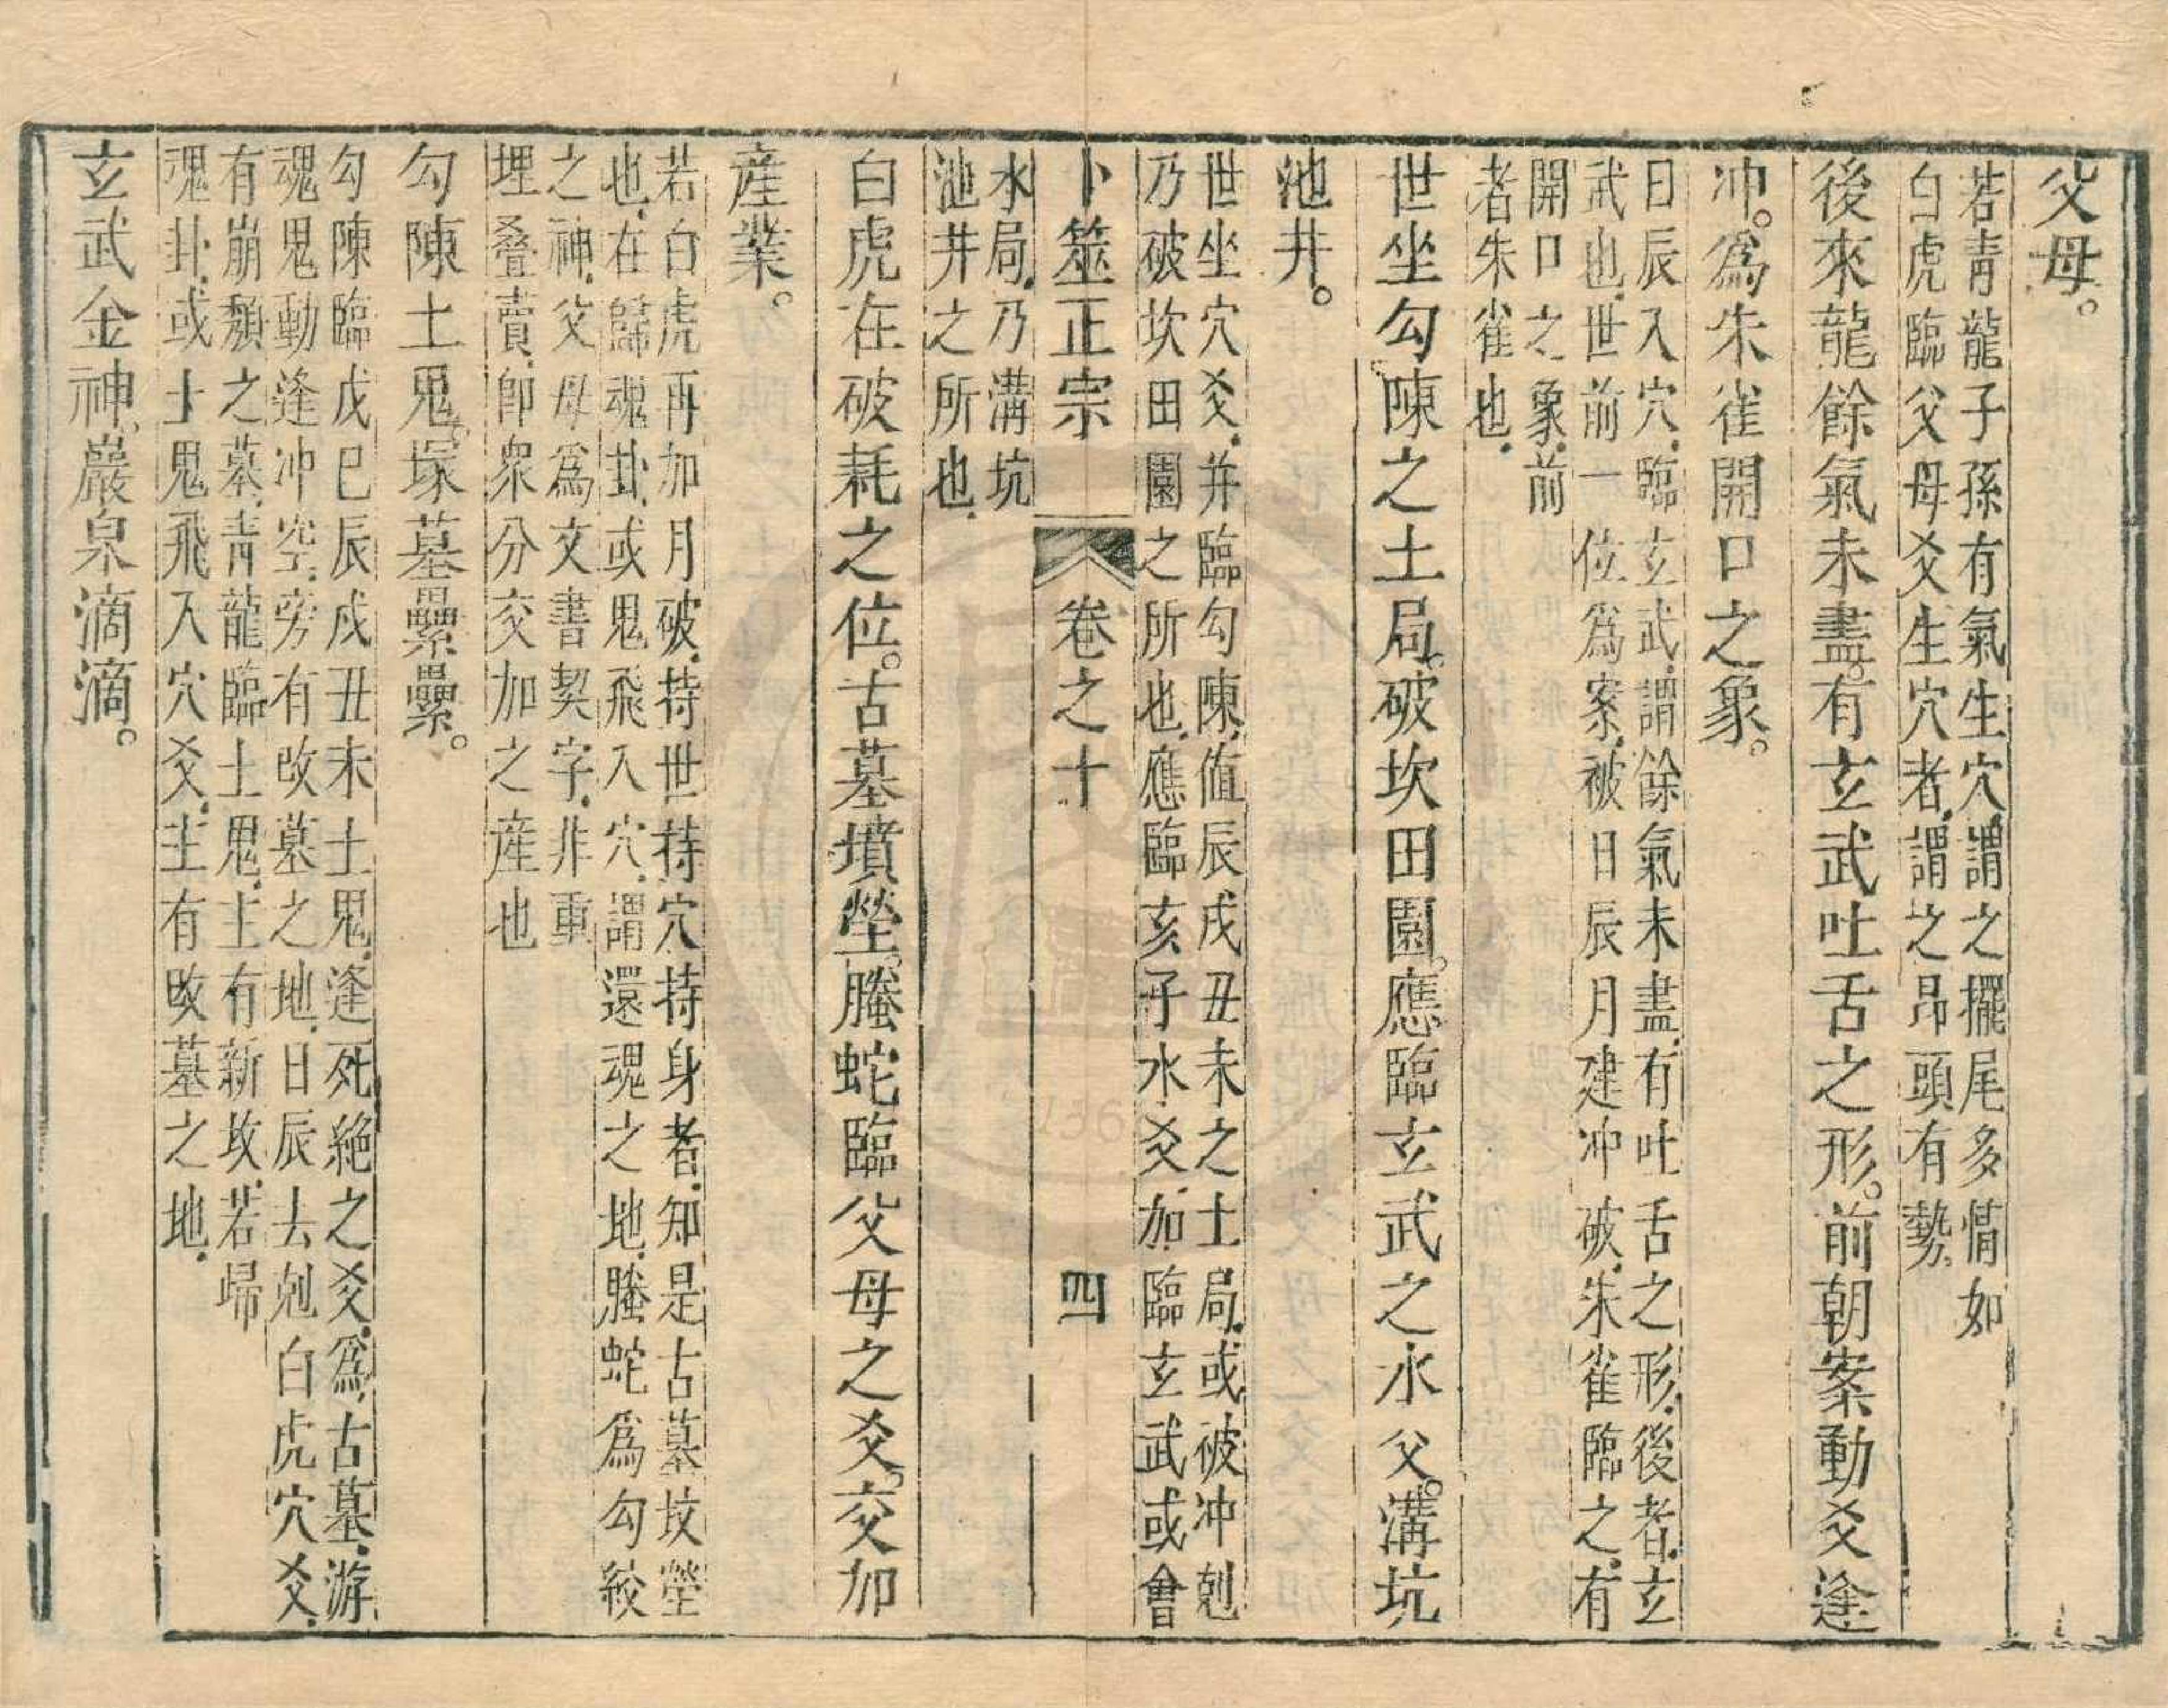 父母。
若青龍子孫有氣生穴.謂之擺尾多情如
白虎臨父母爻生穴者.謂之昂頭有勢.
後來龍餘氣未盡。有玄武吐舌之形。前朝案動爻逢
冲。為朱雀開口之象。
日辰入穴.臨玄武.謂餘氣未盡.有吐舌之形.後者.玄
武也.世前一位為案.被日辰月建冲破.朱雀臨之.有
開口之象.前
者朱雀也.
世坐勾陳之土局。破坎田園。應臨玄武之水父。溝坑
池井。
世坐穴爻.并臨勾陳.值辰戌丑未之土局.或被冲剋
乃破坎田園之所也.應臨亥子水爻.加臨玄武或會
卜筮正宗 卷之十 四
水局.乃溝坑
池井之所也.
白虎在破耗之位。古墓墳塋。螣蛇臨父母之爻。交加
産業。
若白虎再加月破.持世持穴持身者.知是古墓坟塋
也.在歸魂卦.或鬼飛入穴.謂還魂之地.螣蛇為勾絞
之神.父母為文書契字.非重
埋叠賣.卽衆分交加之産也
勾陳土鬼。塚墓纍纍。
勾陳臨戊巳辰戌丑未土鬼.逢死絶之爻.為古墓.游
魂鬼動逢冲空.旁有改墓之地.日辰去剋白虎穴爻.
有崩頽之墓.青龍臨土鬼.主有新坟.若歸
魂卦.或土鬼飛入穴爻.主有改墓之地.
玄武金神。巖泉滴滴。